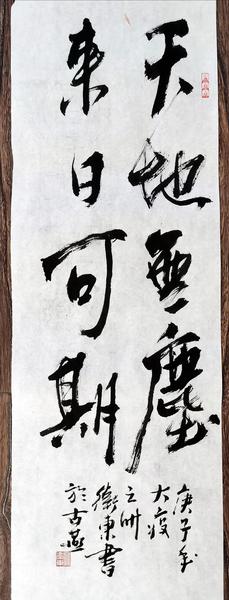 天地無塵
来日可期
庚子年
大疫
之州
衛東書
於古燕